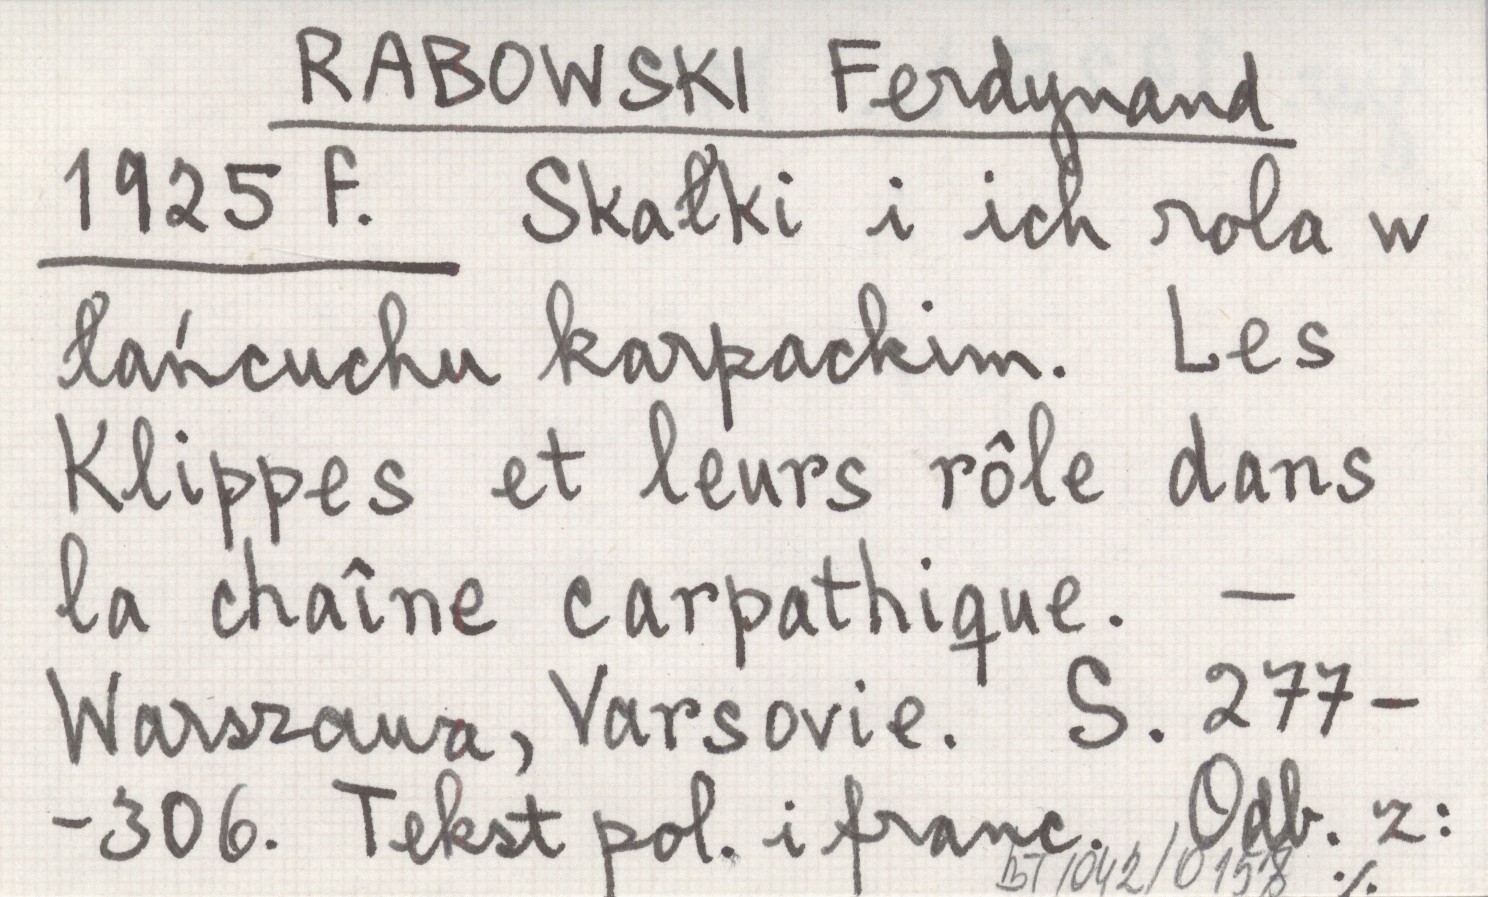 RABOWSKI Ferdynand
1925 F. Skałki i ich rola w
łańcuchu karpackim. Les
Klippes et leurs rôle dans
la chaîne carpathique. —
Warszawa, Varsovie. S. 277-
-306. Tekst pol. i franc. Odb. z:
BT 1042/0158 ./.